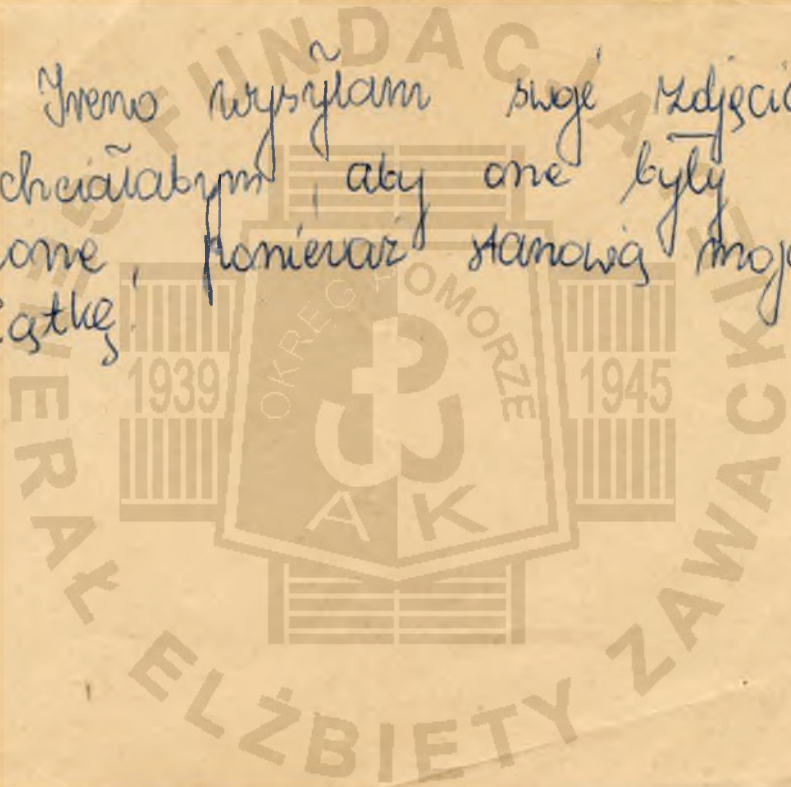 Ireno wysyłam swoje zdjęcia
chciałabym, aby one były
one, ponieważ stanowią moją
iątkę.
FUNDACJA GENERAŁ ELŻBIETY ZAWACKIEJ
OKRĘG POMORZE
1939
1945
AK